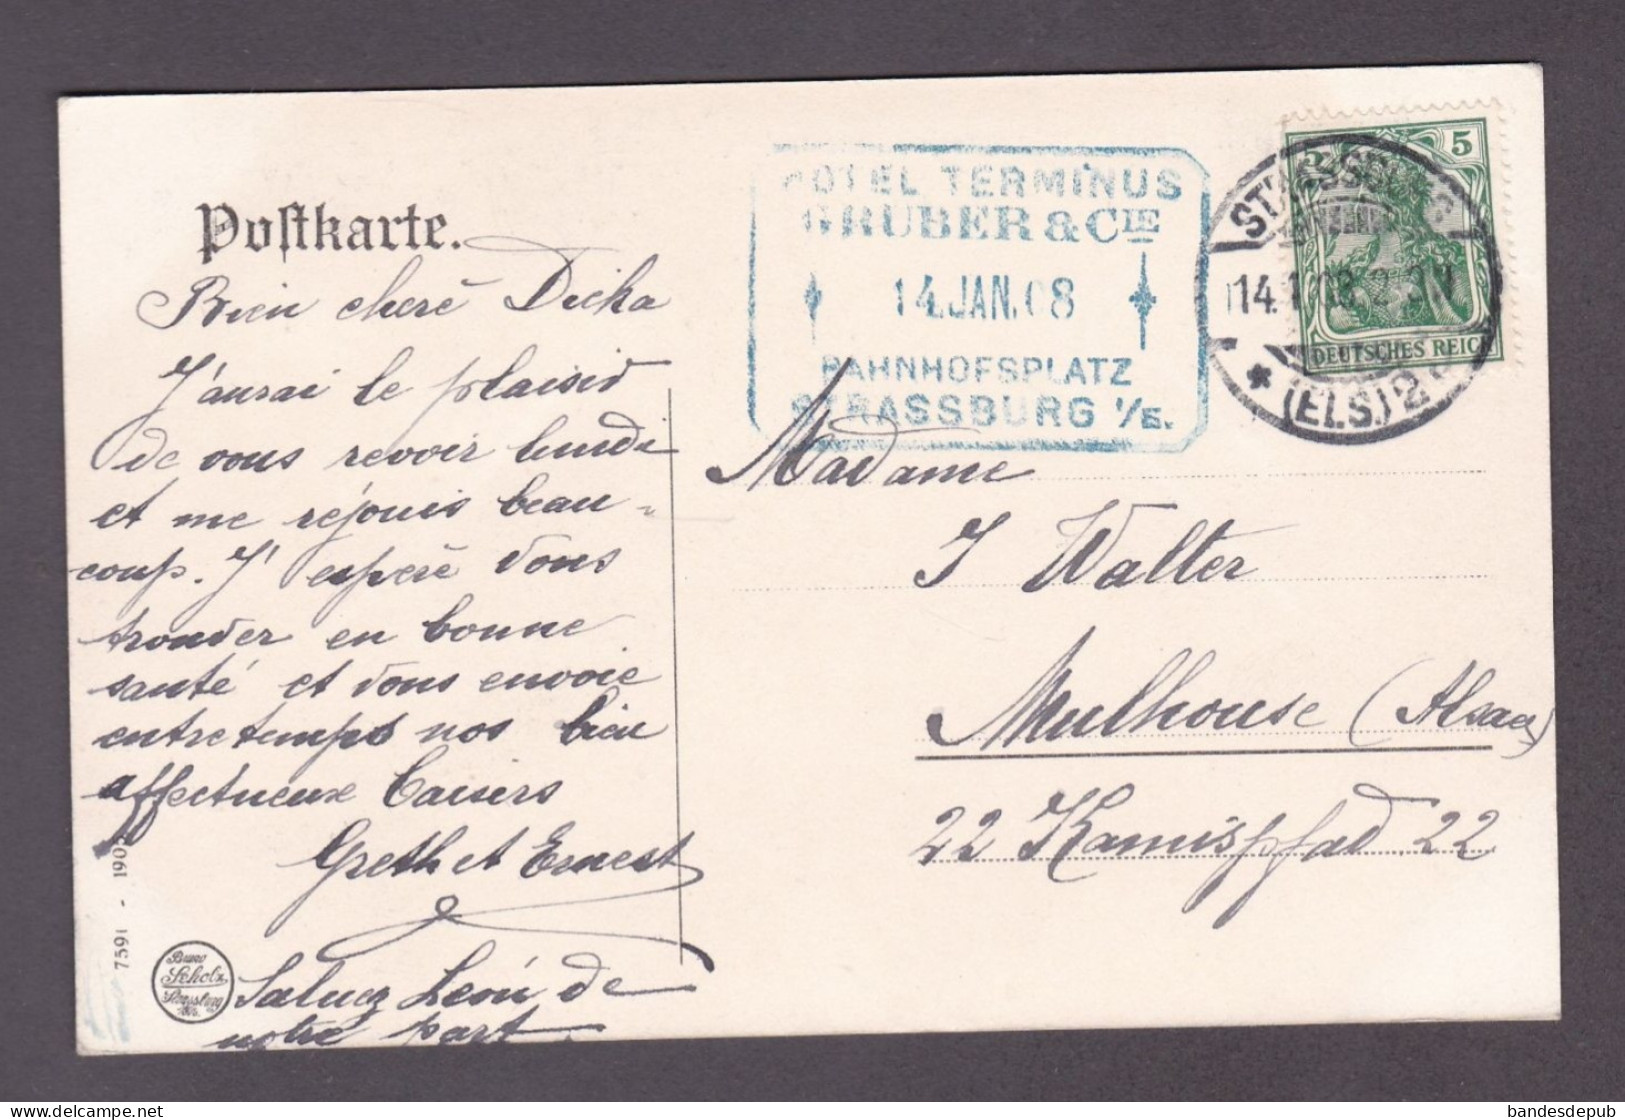 Postkarte.
Bien cheré Dicka
J'aurai le plaisir
de vous revoir lundi
et me réjouis beau-
coup. J'esperé vous
trouver en bonne
santé et vous envoie
entretemps nos bien
affectueux baisers
Greth et Ernest
Saluez Léon de
notre part.
7591 - 190
Bruno
Scholz
Strassburg
HOTEL TERMINUS
GRUBER & CIE
14.JAN.08
BAHNHOFSPLATZ
STRASSBURG I/E.
STRASSBURG
14.1.08
* (ELS.) 2
5
DEUTSCHES REICH
Madame
J Walter
Mulhouse (Alsace)
22 Kamispfad 22
bandesdepub
© delcampe.net